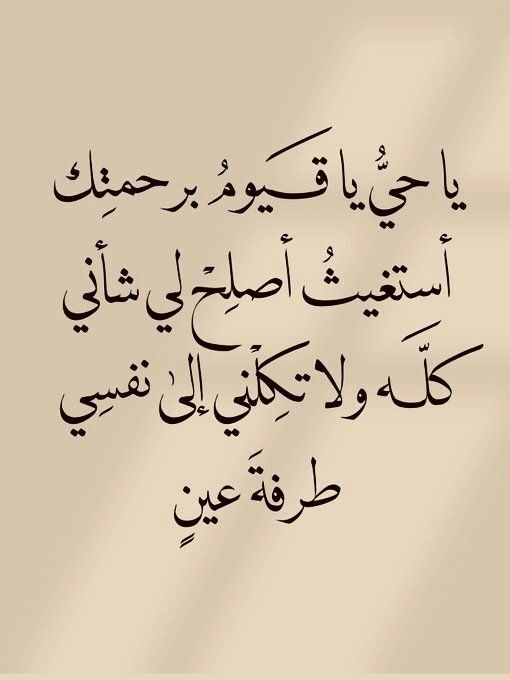 يا حيُّ يا قَيومُ برحمتِك
أستغيثُ أصلِحْ لي شأني
كلَّه ولا تكِلْني إلىٰ نفسِي
طرفةَ عينٍ